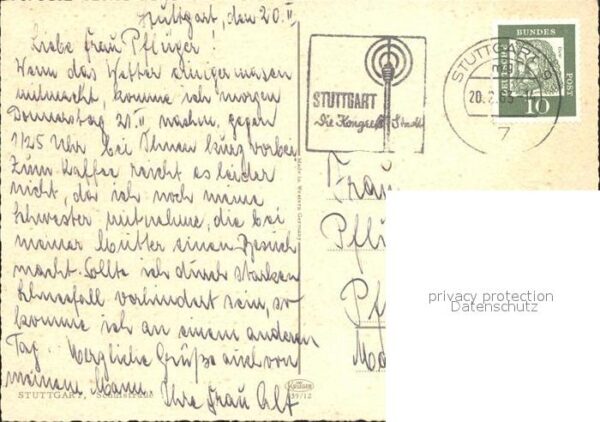 Stuttgart, den 20. II
Liebe Frau Pflüger!
Wenn das Wetter einigermasen
mitmacht, komme ich morgen
Donnerstag 21. II nachm. gegen
1/2 5 Uhr bei Ihnen kurz vorbei
Zum Kaffee reicht es leider
nicht, da ich noch meine
Schwester mitnehme, die bei
meiner Mutter einen Besuch
macht. Sollte ich durch starken
Schneefall verhindert sein, so
komme ich an einem anderen
Tag. Herzliche Grüße auch von
meinem Mann. Ihre Frau
STUTTGART, Schulstraße
STUTTGART
Die Kongreß-Stadt
STUTTGART
20.2.63
7
BUNDES
POST
10
Made in Western Germany
Frau
Pflü
Pf
privacy protection
Datenschutz